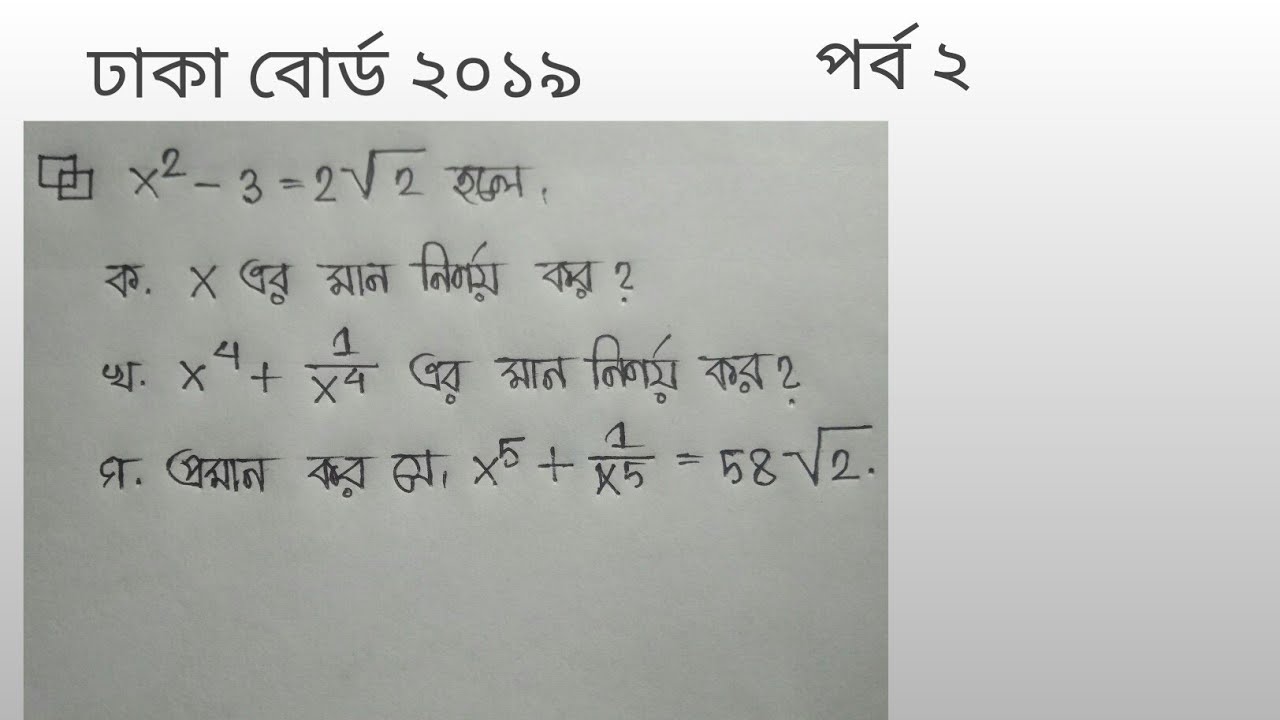 ঢাকা বোর্ড ২০১৯ পর্ব ২
x² - 3 = 2√2 হলে,
ক. x এর মান নির্ণয় কর?
খ. x⁴ + 1/x⁴ এর মান নির্ণয় কর?
গ. প্রমান কর যে, x⁵ + 1/x⁵ = 58√2.